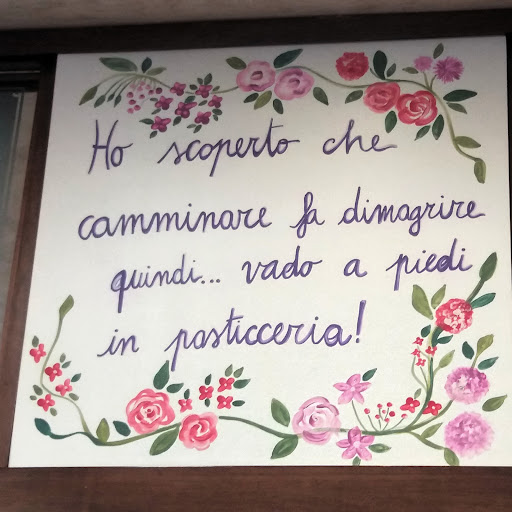 Ho scoperto che
camminare fa dimagrire
quindi... vado a piedi
in pasticceria!